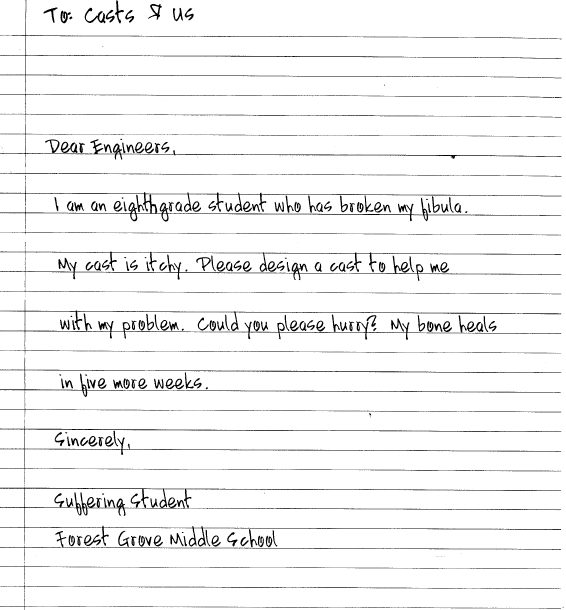 To: Casts & us
Dear Engineers,
I am an eighth grade student who has broken my fibula.
My cast is itchy. Please design a cast to help me
with my problem. Could you please hurry? My bone heals
in five more weeks.
Sincerely,
Suffering Student
Forest Grove Middle School